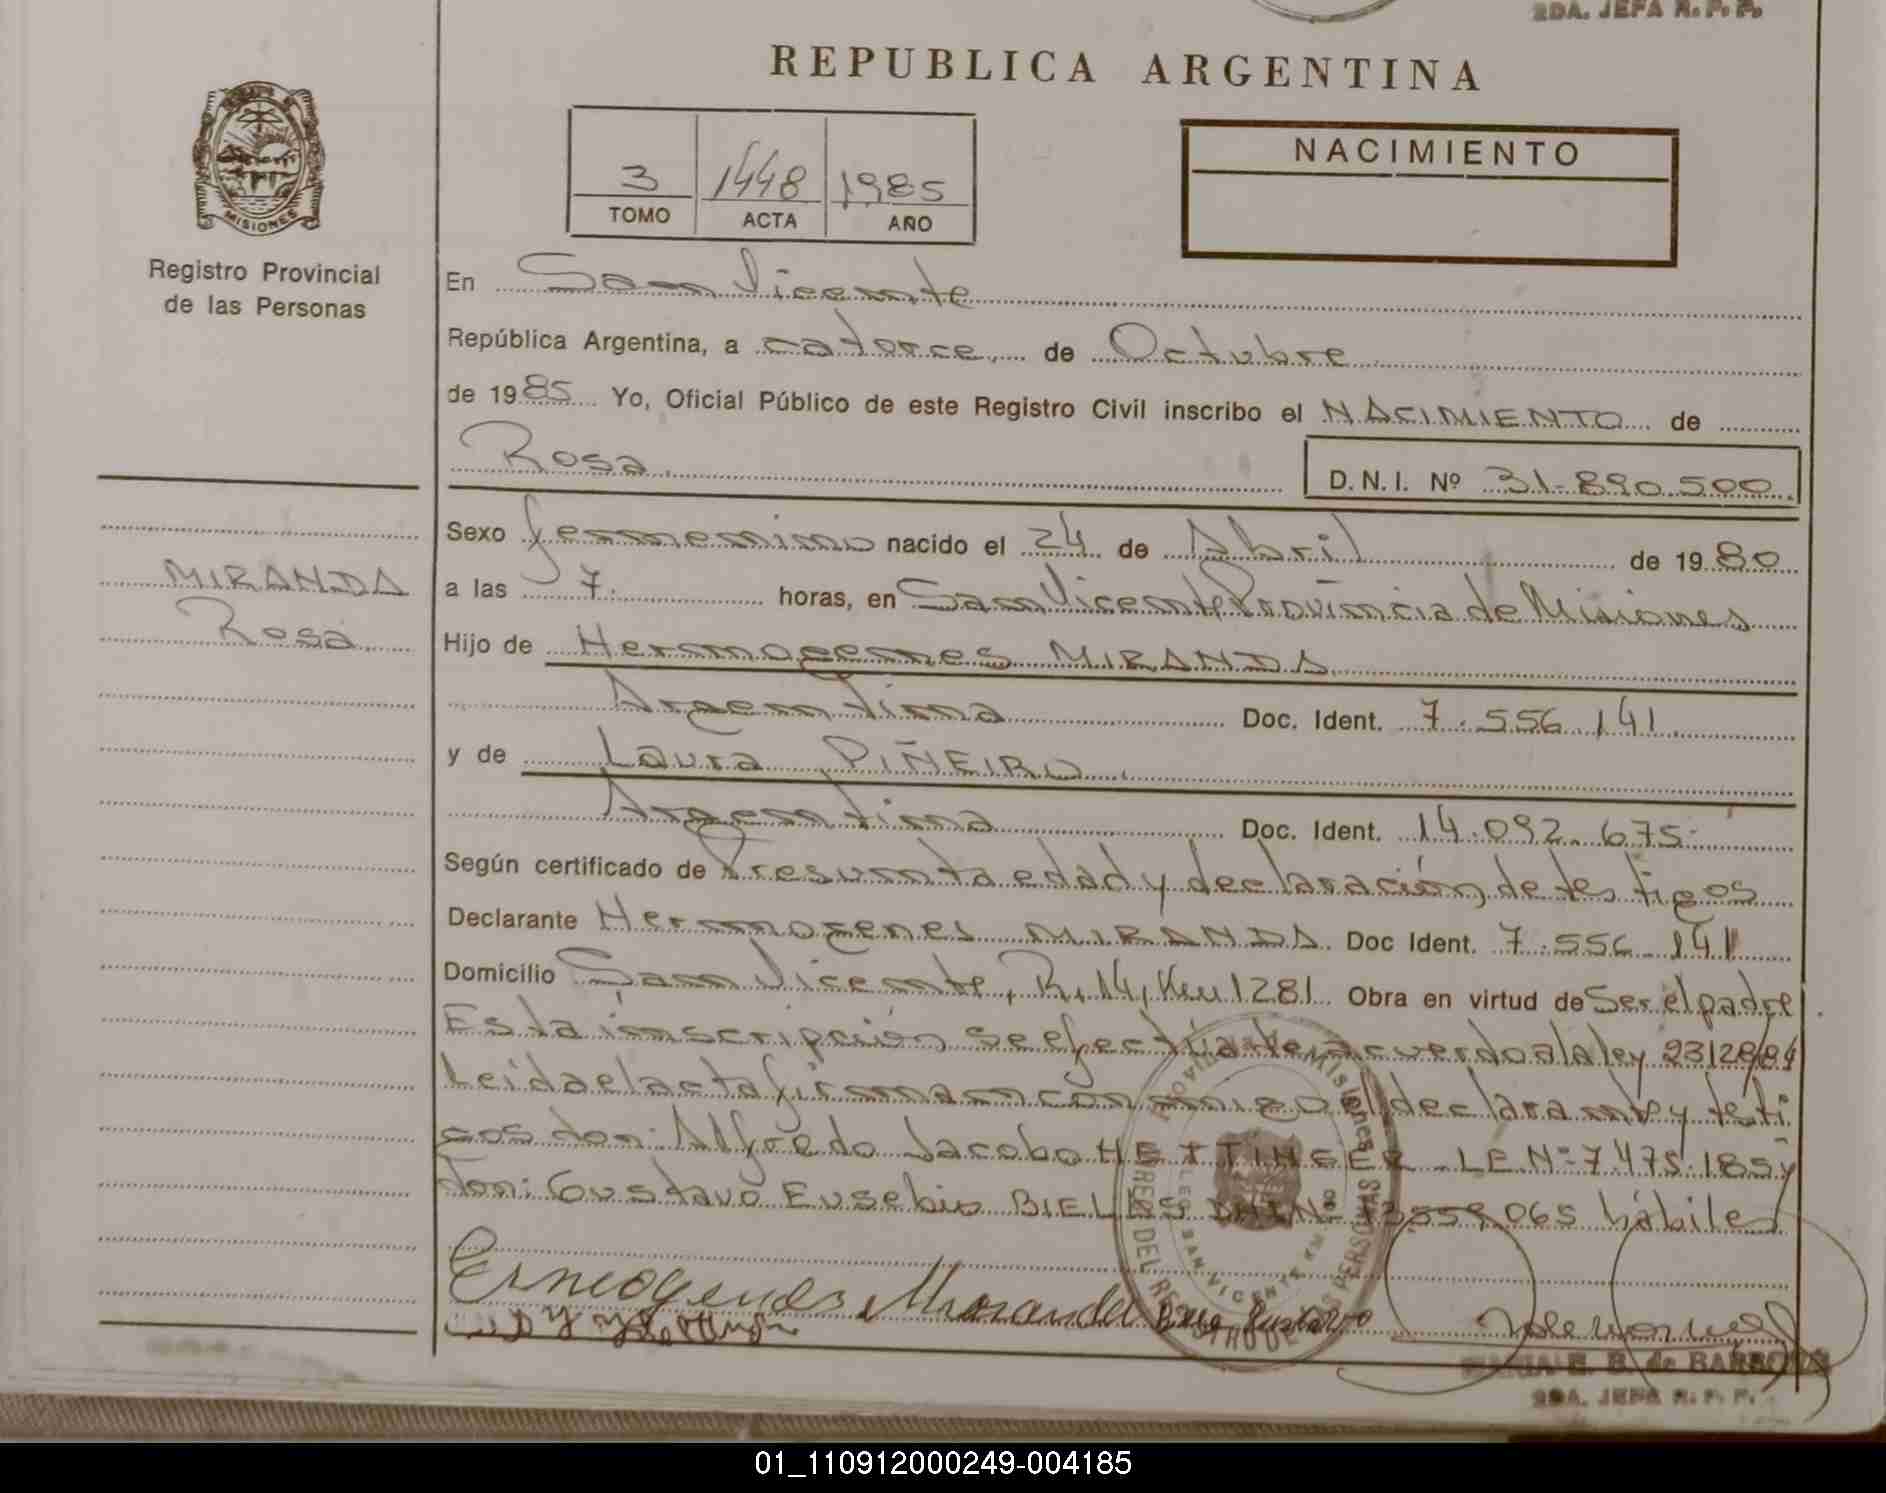 2DA. JEFA R. P. P.
REPUBLICA ARGENTINA
MISIONES
Registro Provincial
de las Personas
3 1448 1985
TOMO ACTA AÑO
NACIMIENTO
En San Vicente
República Argentina, a catorce, de Octubre
de 1985 Yo, Oficial Público de este Registro Civil inscribo el NACIMIENTO de
Rosa D.N.I. Nº 31-890.500
MIRANDA
Rosa
Sexo femenino nacido el 24 de Abril de 1980
a las 7. horas, en San Vicente Provincia de Misiones
Hijo de Hermogenes MIRANDA
Argentina Doc. Ident. 7.556.141
y de Laura PIÑEIRO
Argentina Doc. Ident. 14.092.675
Según certificado de Presunta edad y declaración de testigos
Declarante Hermogenes MIRANDA Doc Ident. 7.556.141
Domicilio San Vicente, R, 14, Km 1281 Obra en virtud de Ser el padre
Esta inscripción se efectúa de acuerdo a la ley 23128/84
Leida el acta firman conmigo el declarante y testi
gos don: Alfredo Jacobo HETTINGER L E Nº 7.475.185 y
don: Gustavo Eusebio BIELAS DNI Nº 13559.065 hábiles
2DA. JEFA R. P. P.
01_110912000249-004185